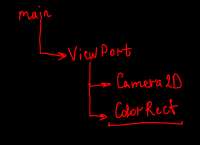 main
ViewPort
Camera2D
ColorRect